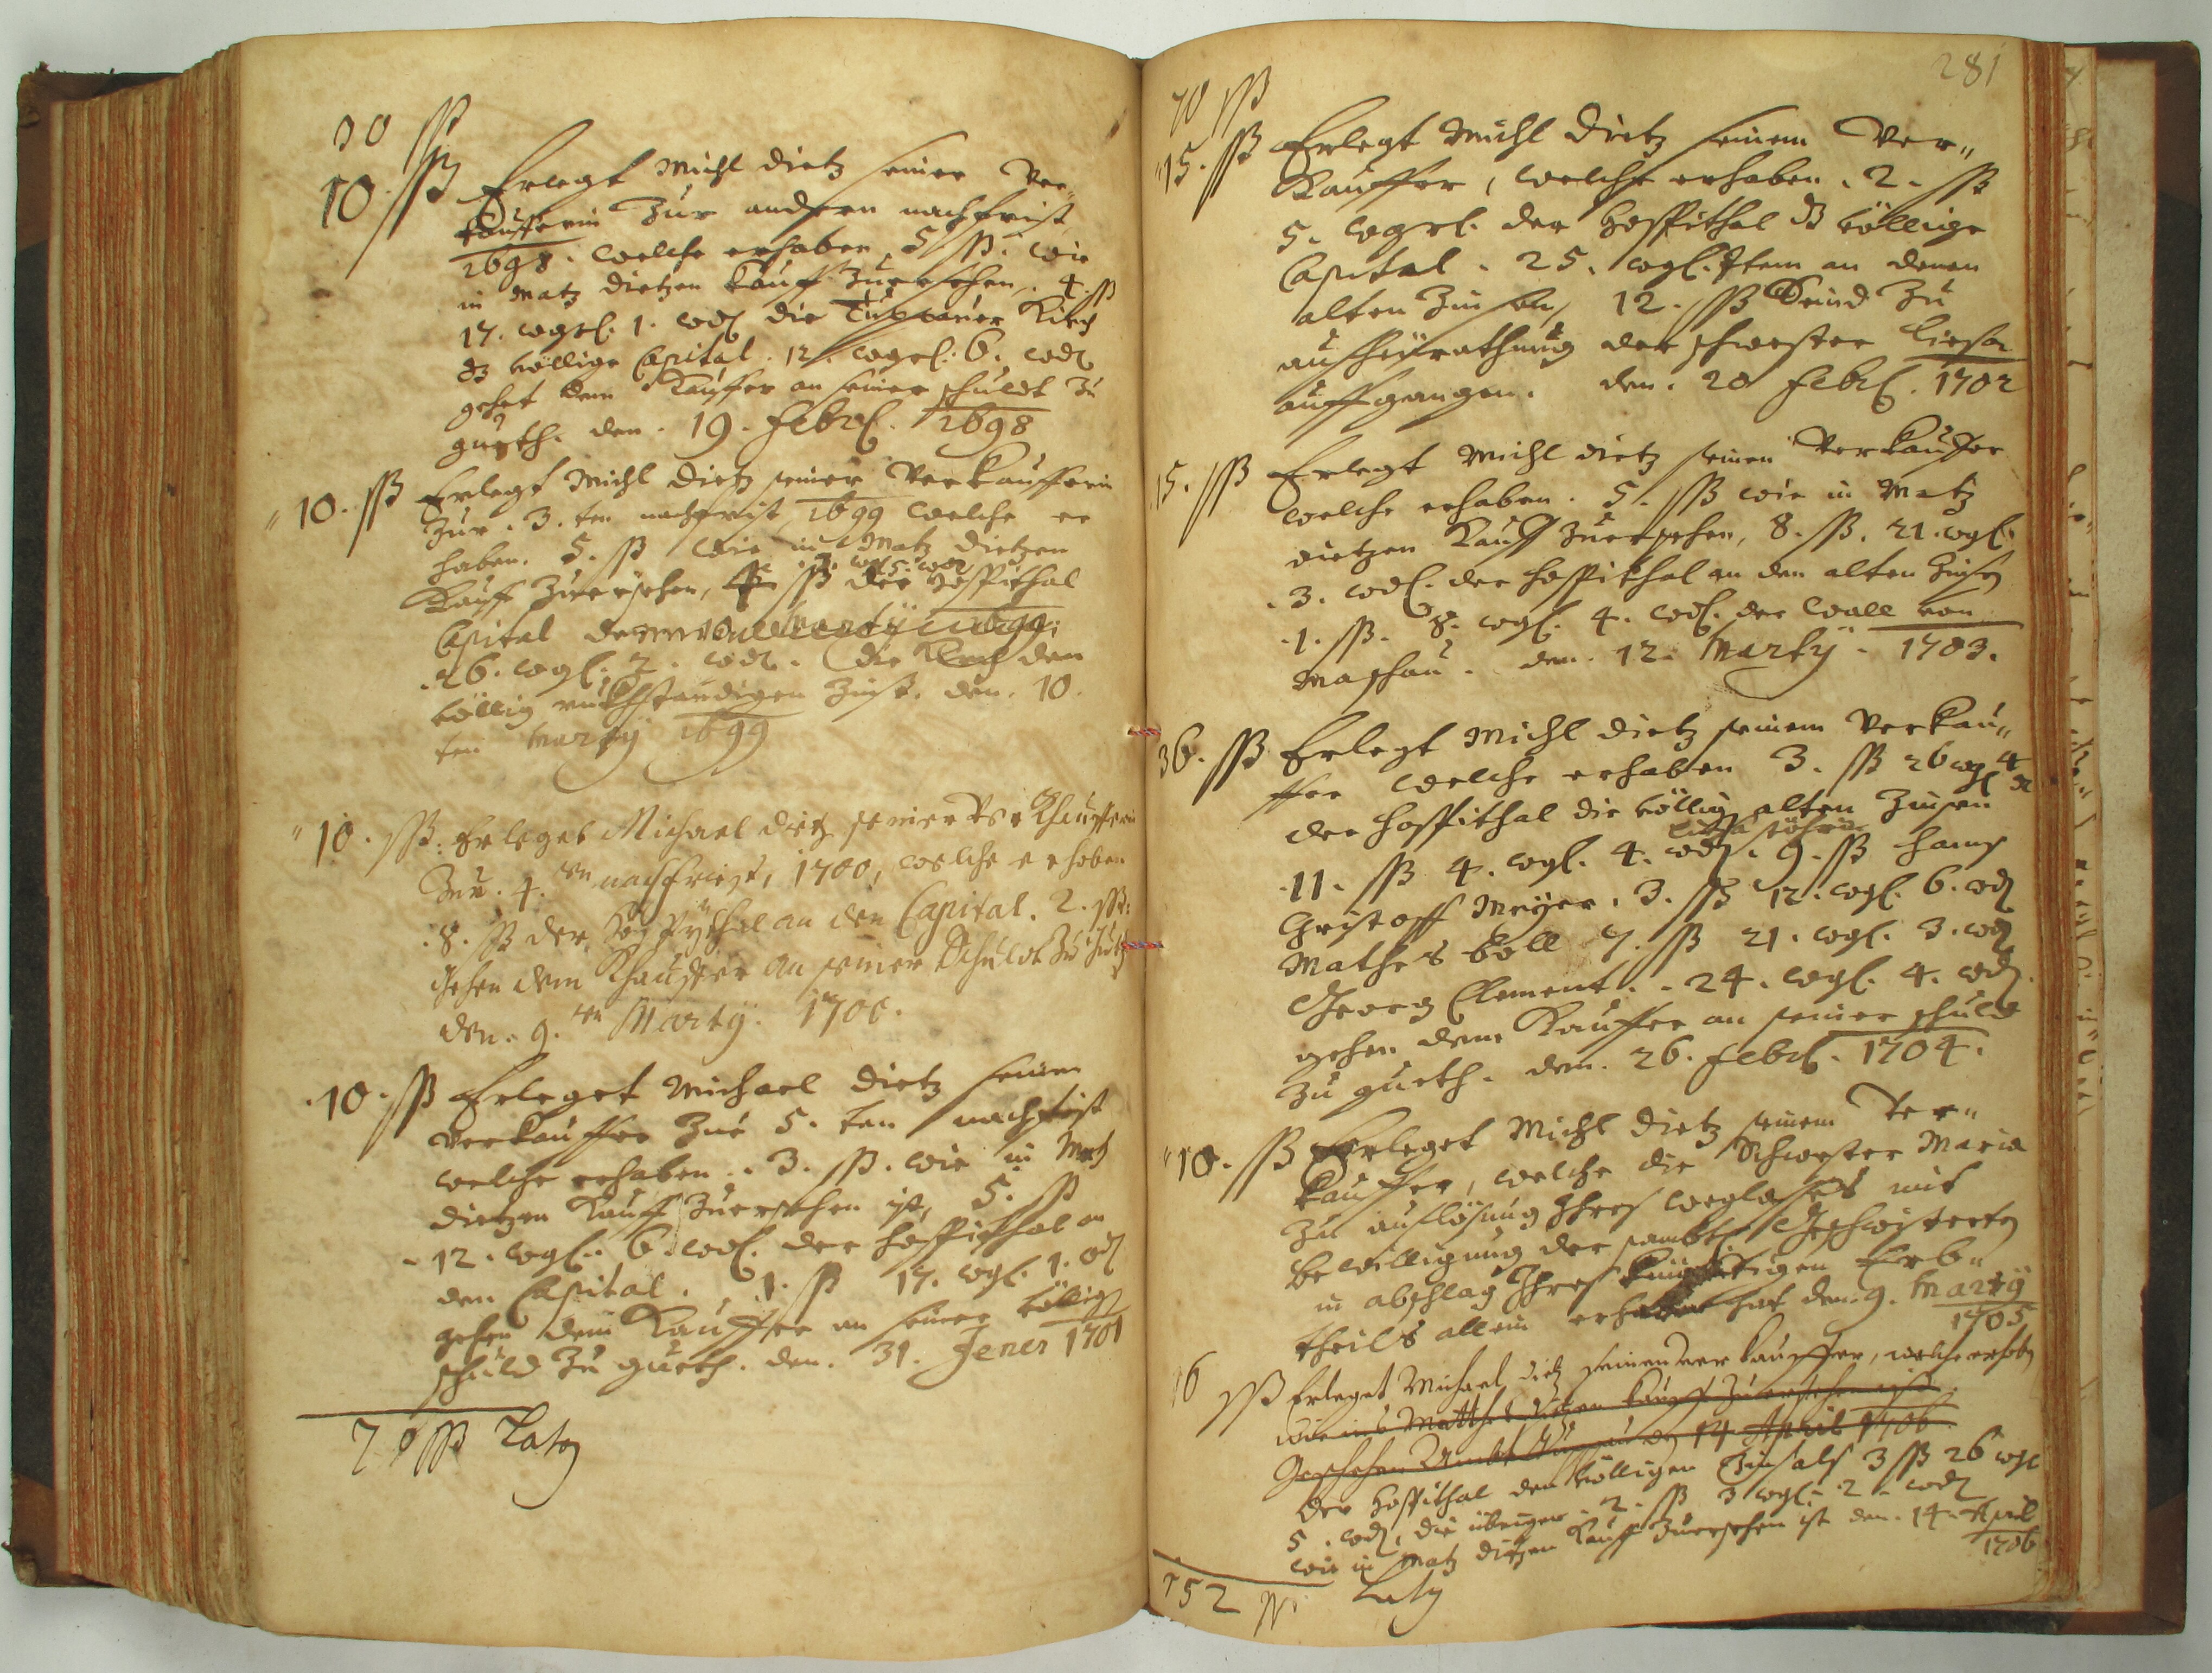 30 ßß
10. ßß Erlegt Michl Dietz seiner Ver„
kaufferin Zur andern nachfrist
1698. welche erhaben, 5 ßß. wie
in Matz Dietzen kauff Zuersehen, 4. ßß
17. wgrl. 1. wdl die Tuppauer Kirch
dz völlige Capital. 12. wgrl: 6. wdl
gehet dem Kauffer an seiner schuldt Zu
gueth. den. 19. Febrl. 1698
„10. ßß Erlegt Michl Dietz seiner Verkaufferin
Zur. 3. ten nachfrist 1699 welche er
haben. 5. ßß wie in Matz Dietzen
Kauff Zuersehen, ßß der Hospithal
Capital
.26. wgl. 2. wdl. die Kirch den
völlig rückständigen Zinß. den. 10.
ten Martÿ 1699
„10. ßß. Erleget Michael Dietz seiner Verkhaufferin
Zur. 4. ten nachfriest, 1700, welche erhoben
.8. ßß der Hospÿthal an den Capital. 2. ßß:
gehen dem Khauffer an seiner Schuldt Zu
den. 9. ten Martÿ. 1700.
.10. ßß Erleget Michael Dietz seinem
Verkauffer Zue 5. ten nachfrist
welche erhaben. 3. ßß. wie in Matz
Dietzen Kauff Zuersehen ist, 5. ßß
12. wgl. 6. wdl. der Hospithal an
den Capital. 1. ßß 17. wgl. 1. wdl
gehen dem Kauffer an seiner völlig
schuld Zu gueth. den. 31. Jener 1701
70 ßß Latus
281
70 ßß
„15. ßß Erlegt Michl Dietz seinem Ver„
kauffer, welche erhaben. 2. ßß
5. wgrl. der Hospithal dz völlige
Capital. 25. wgl. Item an denen
alten Zinsen, 12. ßß Seind Zu
ausheÿrathung der schwester Liesa
auffgangen. den. 20 Febrl. 1702
15. ßß Erlegt Michl Dietz seinen Verkauffer
welche erhaben. 5. ßß wie in Matz
Dietzen Kauff Zuersehen, 8. ßß. 21. wgl.
.3. wdl. der Hospithal an den alten Zinsen
.1. ßß. 8. wgl. 4. wdl. der Wall von
Maschau. den. 12. Martÿ. 1703.
36. ßß Erlegt Michl Dietz seinem Verkau„
ffer welche erhaben 3. ßß 26 wgl 4 dl
der Hospithal die völlig alten Zinsen
.11. ßß 4. wgl. 4. wdl. 9. ßß Hans
Christoff Meÿer. 3. ßß 12. wgl. 6. wdl
Mathes Voll 7. ßß 21. wgl. 3. wdl
Georg Clement. 24. wgl. 4. wdl.
gehen dem Kauffer an seiner schuld
Zu gueth. den. 26. Febrl. 1704.
„10. ßß Erleget Michl Dietz seinem Ver„
kauffer, welche die Schwester Maria
Zu auslösung Ihres weglasses mit
bewilligung der sambtl. Geschwisterten
in abschlag Ihres künfftigen Erb„
theils allein erhaben hat den. 9. Martÿ
1705
6 ßß Erleget Michael Dietz seinen verkauffer, welche erhoben
wie ins Matthes Dietzen kauff Zuersehen ist
Geschehen 14 April 1706
der Hospithal den völligen Zinß als 3 ßß 26 wgl
5. wdl, die übrigen 2. ßß 3 wgl. 2. wdl
wie in Matz Dietzen Kauff Zuersehen ist den. 14. April
1706
152 ßß Latus